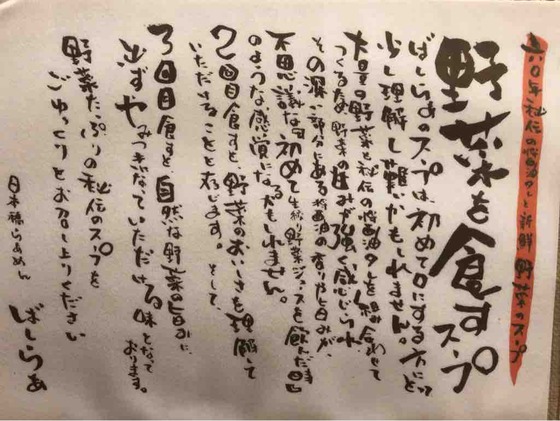 六〇年秘伝の醤油タレと新鮮野菜のスープ
野菜を食すスープ
ばしらぁのスープは、初めて口にする方にとって
少し理解し難いかもしれません。
大量の野菜と秘伝の醤油タレを組み合わせて
つくるため、野菜の甘みが強く感じられ
その深い部分にある醤油の香りや旨みが、
不思議な 初めて生絞り野菜ジュースを飲んだ時
のような感覚になるかもしれません。
2回目食すと野菜のおいしさを理解して
いただけることと存じます。そして、
3回目食すと、自然な野菜の旨みに
必ずやみつきになっていただける味となっております。
野菜たっぷりの秘伝のスープを
ごゆっくりとお召し上りください
日本橋らぁめん ばしらぁ